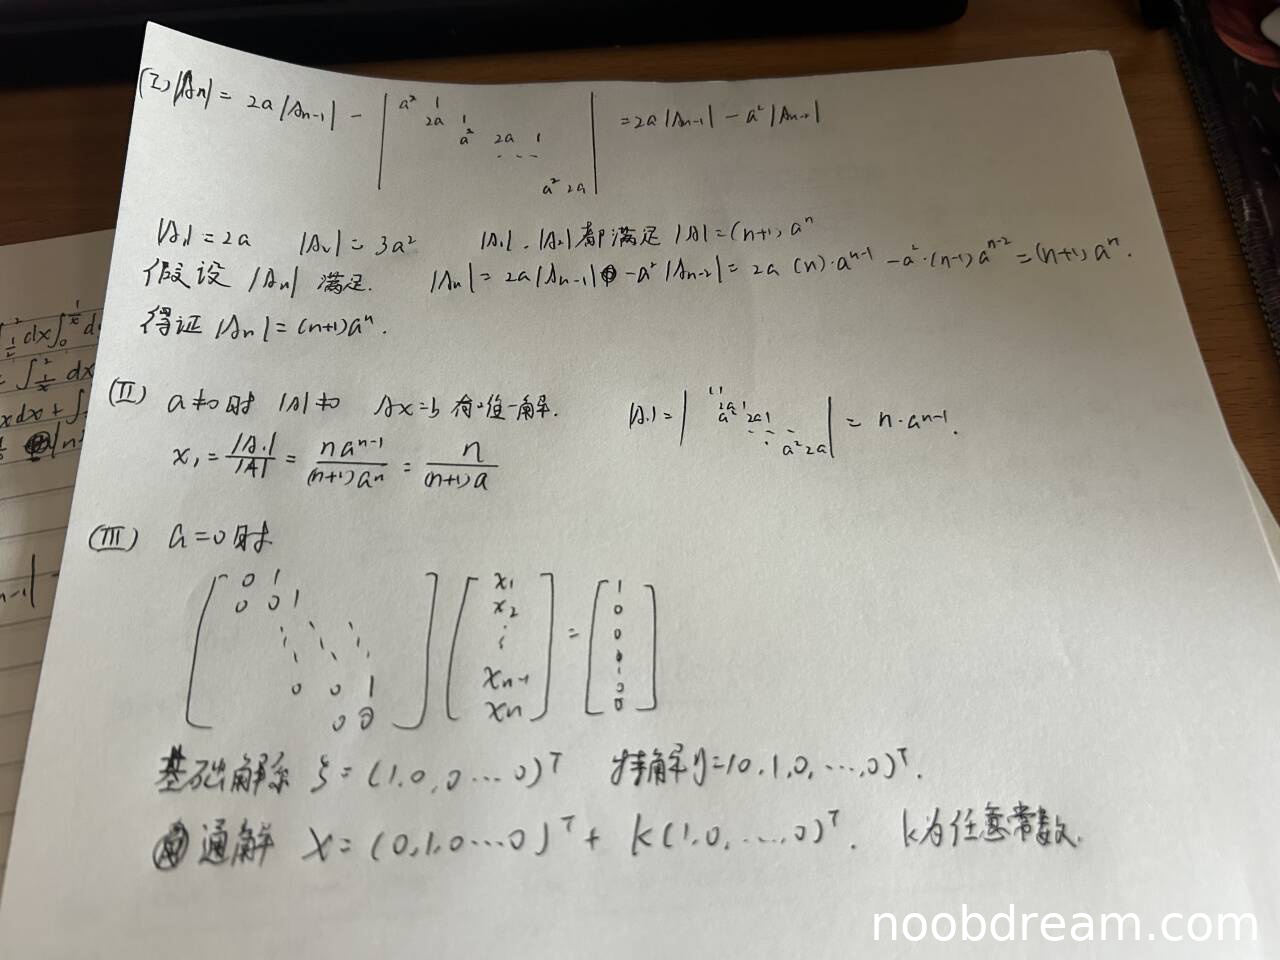 (I) |An| = 2a|An-1| - | a² 1 2a 1 a² 2a 1 ... a² 2a | = 2a|An-1| - a²|An-2|
|A1| = 2a |A2| = 3a² |A1|、|A2|都满足 |A| = (n+1)aⁿ
假设 |An| 满足. |An| = 2a|An-1| - a²|An-2| = 2a (n)·aⁿ⁻¹ - a²·(n-1)aⁿ⁻² = (n+1)aⁿ.
得证 |An| = (n+1)aⁿ.
(II) a≠0时 |A|≠0 Ax=b 有唯一解. |A1| = | 1 1 2a 1 a² 2a 1 ... a² 2a | = n·aⁿ⁻¹.
x₁ = |A1|/|A| = naⁿ⁻¹/(n+1)aⁿ = n/(n+1)a
(III) a=0时
[ 0 1 ] [ x₁ ] [ 1 ]
0 0 1 x₂ 0
⋮ 0
0 0 1 xn-1 = 0
0 0 xn 0
基础解系 ξ = (1,0,0…0)ᵀ 特解η=(0,1,0,…,0)ᵀ.
通解 X = (0,1,0…0)ᵀ + k(1,0,…,0)ᵀ. k为任意常数.
½ dx∫₀
= ∫ dx
xdx + ∫
n-1|
noobdream.com